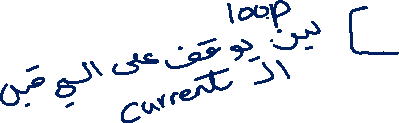 loop
لين يوقف على الي قبل
الـ current